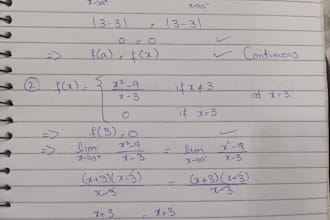 x→a⁺ x→a⁻
|3-3| = |3-3|
0 = 0 ✓
=> f(a) = f(x) ✓ Continuous
② f(x) = { x²-9 / x-3 if x≠3 at x=3
0 if x=3
=> f(3) = 0 ✓
=> lim x→a⁺ x²-9 / x-3 = lim x→a⁻ x²-9 / x-3
(x+3)(x-3) / x-3 = (x+3)(x-3) / x-3
x+3 = x+3